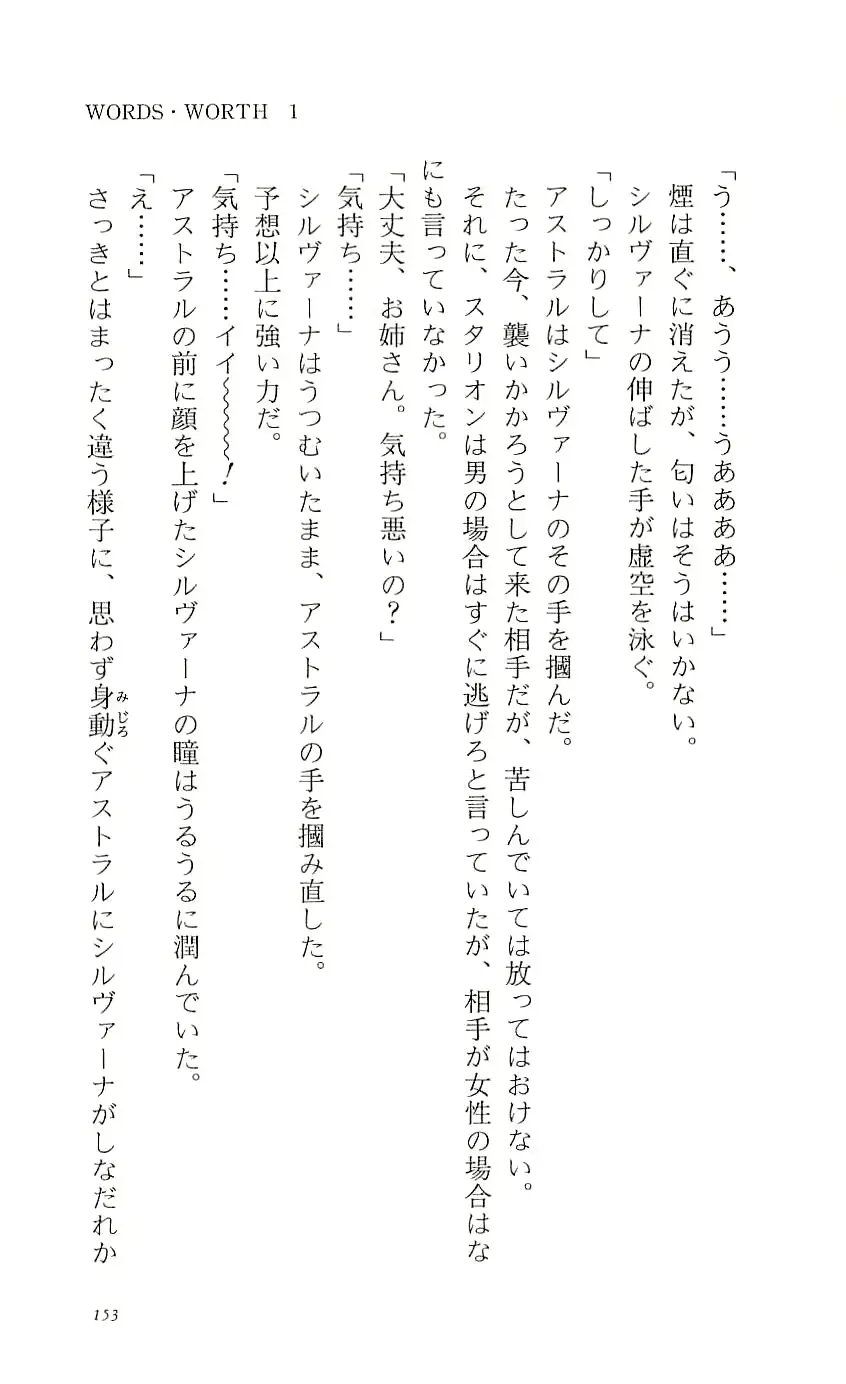 WORDS・WORTH 1
「う……、あうう……うああああ……」
煙は直ぐに消えたが、匂いはそうはいかない。
シルヴァーナの伸ばした手が虚空を泳ぐ。
「しっかりして」
アストラルはシルヴァーナのその手を摑んだ。
たった今、襲いかかろうとして来た相手だが、苦しんでいては放ってはおけない。
それに、スタリオンは男の場合はすぐに逃げろと言っていたが、相手が女性の場合はな
にも言っていなかった。
「大丈夫、お姉さん。気持ち悪いの？」
「気持ち……」
シルヴァーナはうつむいたまま、アストラルの手を摑み直した。
予想以上に強い力だ。
「気持ち……イイ～～～～！」
アストラルの前に顔を上げたシルヴァーナの瞳はうるうるに潤んでいた。
「え……」
さっきとはまったく違う様子に、思わず身動みじろぐアストラルにシルヴァーナがしなだれか
153